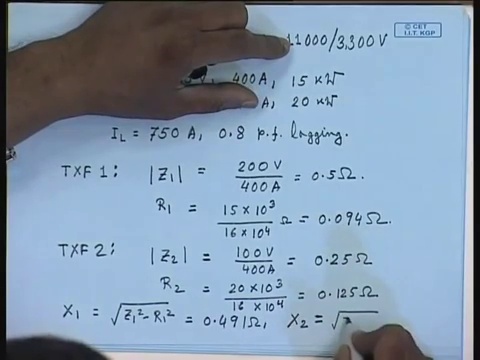 © CET
I.I.T. KGP
11000/3,300 V
400A, 15 kW
A, 20 kW
I_L = 750 A, 0.8 p.f. lagging.
TXF 1: |Z₁| = 200 V / 400A = 0.5Ω.
R₁ = 15 × 10³ / 16 × 10⁴ Ω = 0.094Ω.
TXF 2: |Z₂| = 100 V / 400A = 0.25Ω
R₂ = 20 × 10³ / 16 × 10⁴ = 0.125Ω
X₁ = √(Z₁² - R₁²) = 0.491Ω, X₂ = √